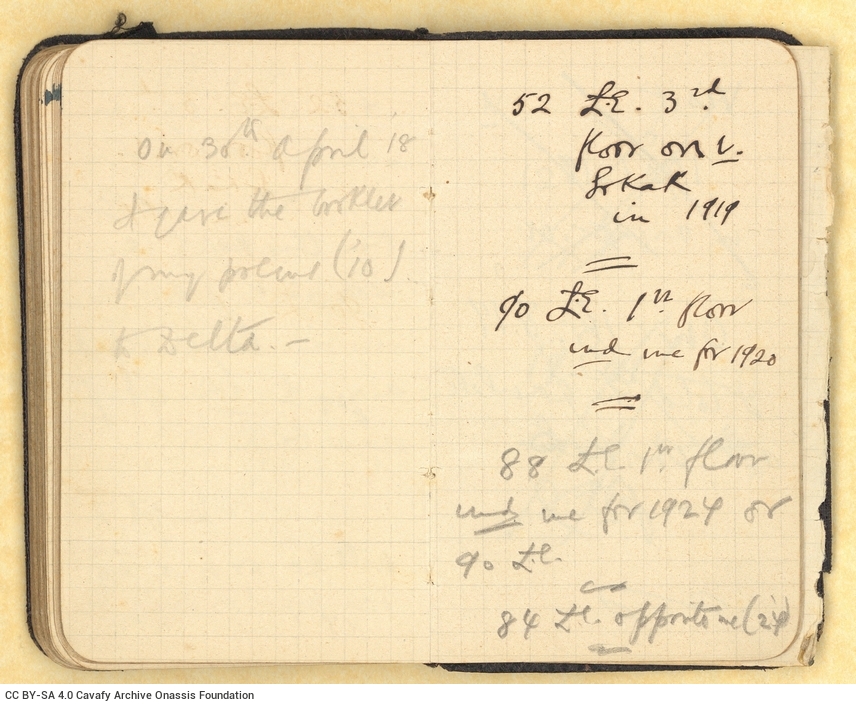 On 30th April 18
I gave the booklet
of my poems (10)
to Delta. —
52 L.E. 3rd.
floor over
in 1919
90 L.E. 1st. floor
und me for 1920
88 L.E. 1st floor
und me for 1924 or
90 L.E.
84 L.E. opposite me (24)
CC BY-SA 4.0 Cavafy Archive Onassis Foundation